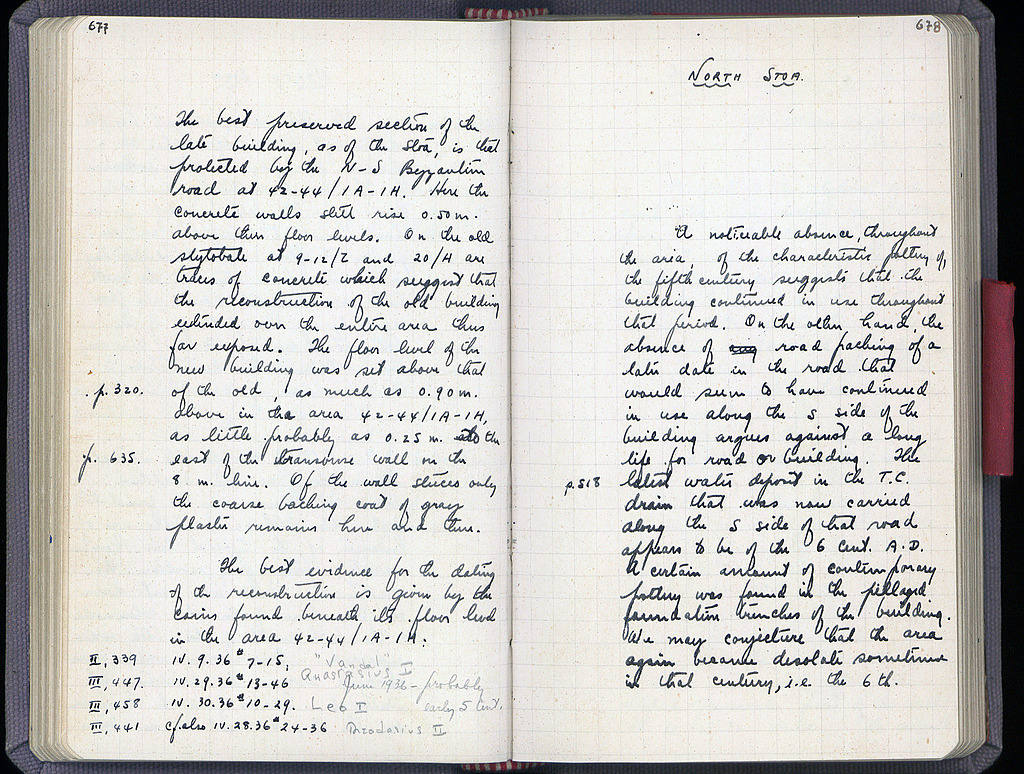 677
The best preserved section of the
late building, as of the Stoa, is that
protected by the N-S Byzantine
road at 42-44/1A-1H. Here the
concrete walls still rise 0.50 m.
above their floor levels. On the old
stylobate at 9-12/Z and 20/H are
traces of concrete which suggest that
the reconstruction of the old building
extended over the entire area thus
far exposed. The floor level of the
new building was set above that
p. 320. of the old, as much as 0.90 m.
above in the area 42-44/1A-1H,
as little probably as 0.25 m. to the
p. 635. east of the transverse wall on the
8 m. line. Of the wall stucco only
the coarse backing coat of gray
plaster remains here and there.
The best evidence for the dating
of the reconstruction is given by the
coins found beneath its floor level
in the area 42-44/1A-1H.
II, 339 IV. 9. 36 # 7-15, "Vandal"
Anastasius I
III, 447. IV. 29. 36 # 13-46 June 1936 - probably
early 5 cent.
III, 458 IV. 30. 36 # 10-29. Leo I
III, 441 cf. also IV. 28. 36 # 24-36 Theodosius II
678
NORTH STOA.
A noticeable absence, throughout
the area, of the characteristic pottery of
the fifth century suggests that the
building continued in use throughout
that period. On the other hand, the
absence of road packing of a
late date in the road that
would seem to have continued
in use along the S side of the
building argues against a long
life for road or building. The
p. 518 latest water deposit in the T.C.
drain that was now carried
along the S side of that road
appears to be of the 6 cent. A.D.
A certain amount of contemporary
pottery was found in the pillaged
foundation trenches of the building.
We may conjecture that the area
again became desolate sometime
in that century, i.e. the 6th.